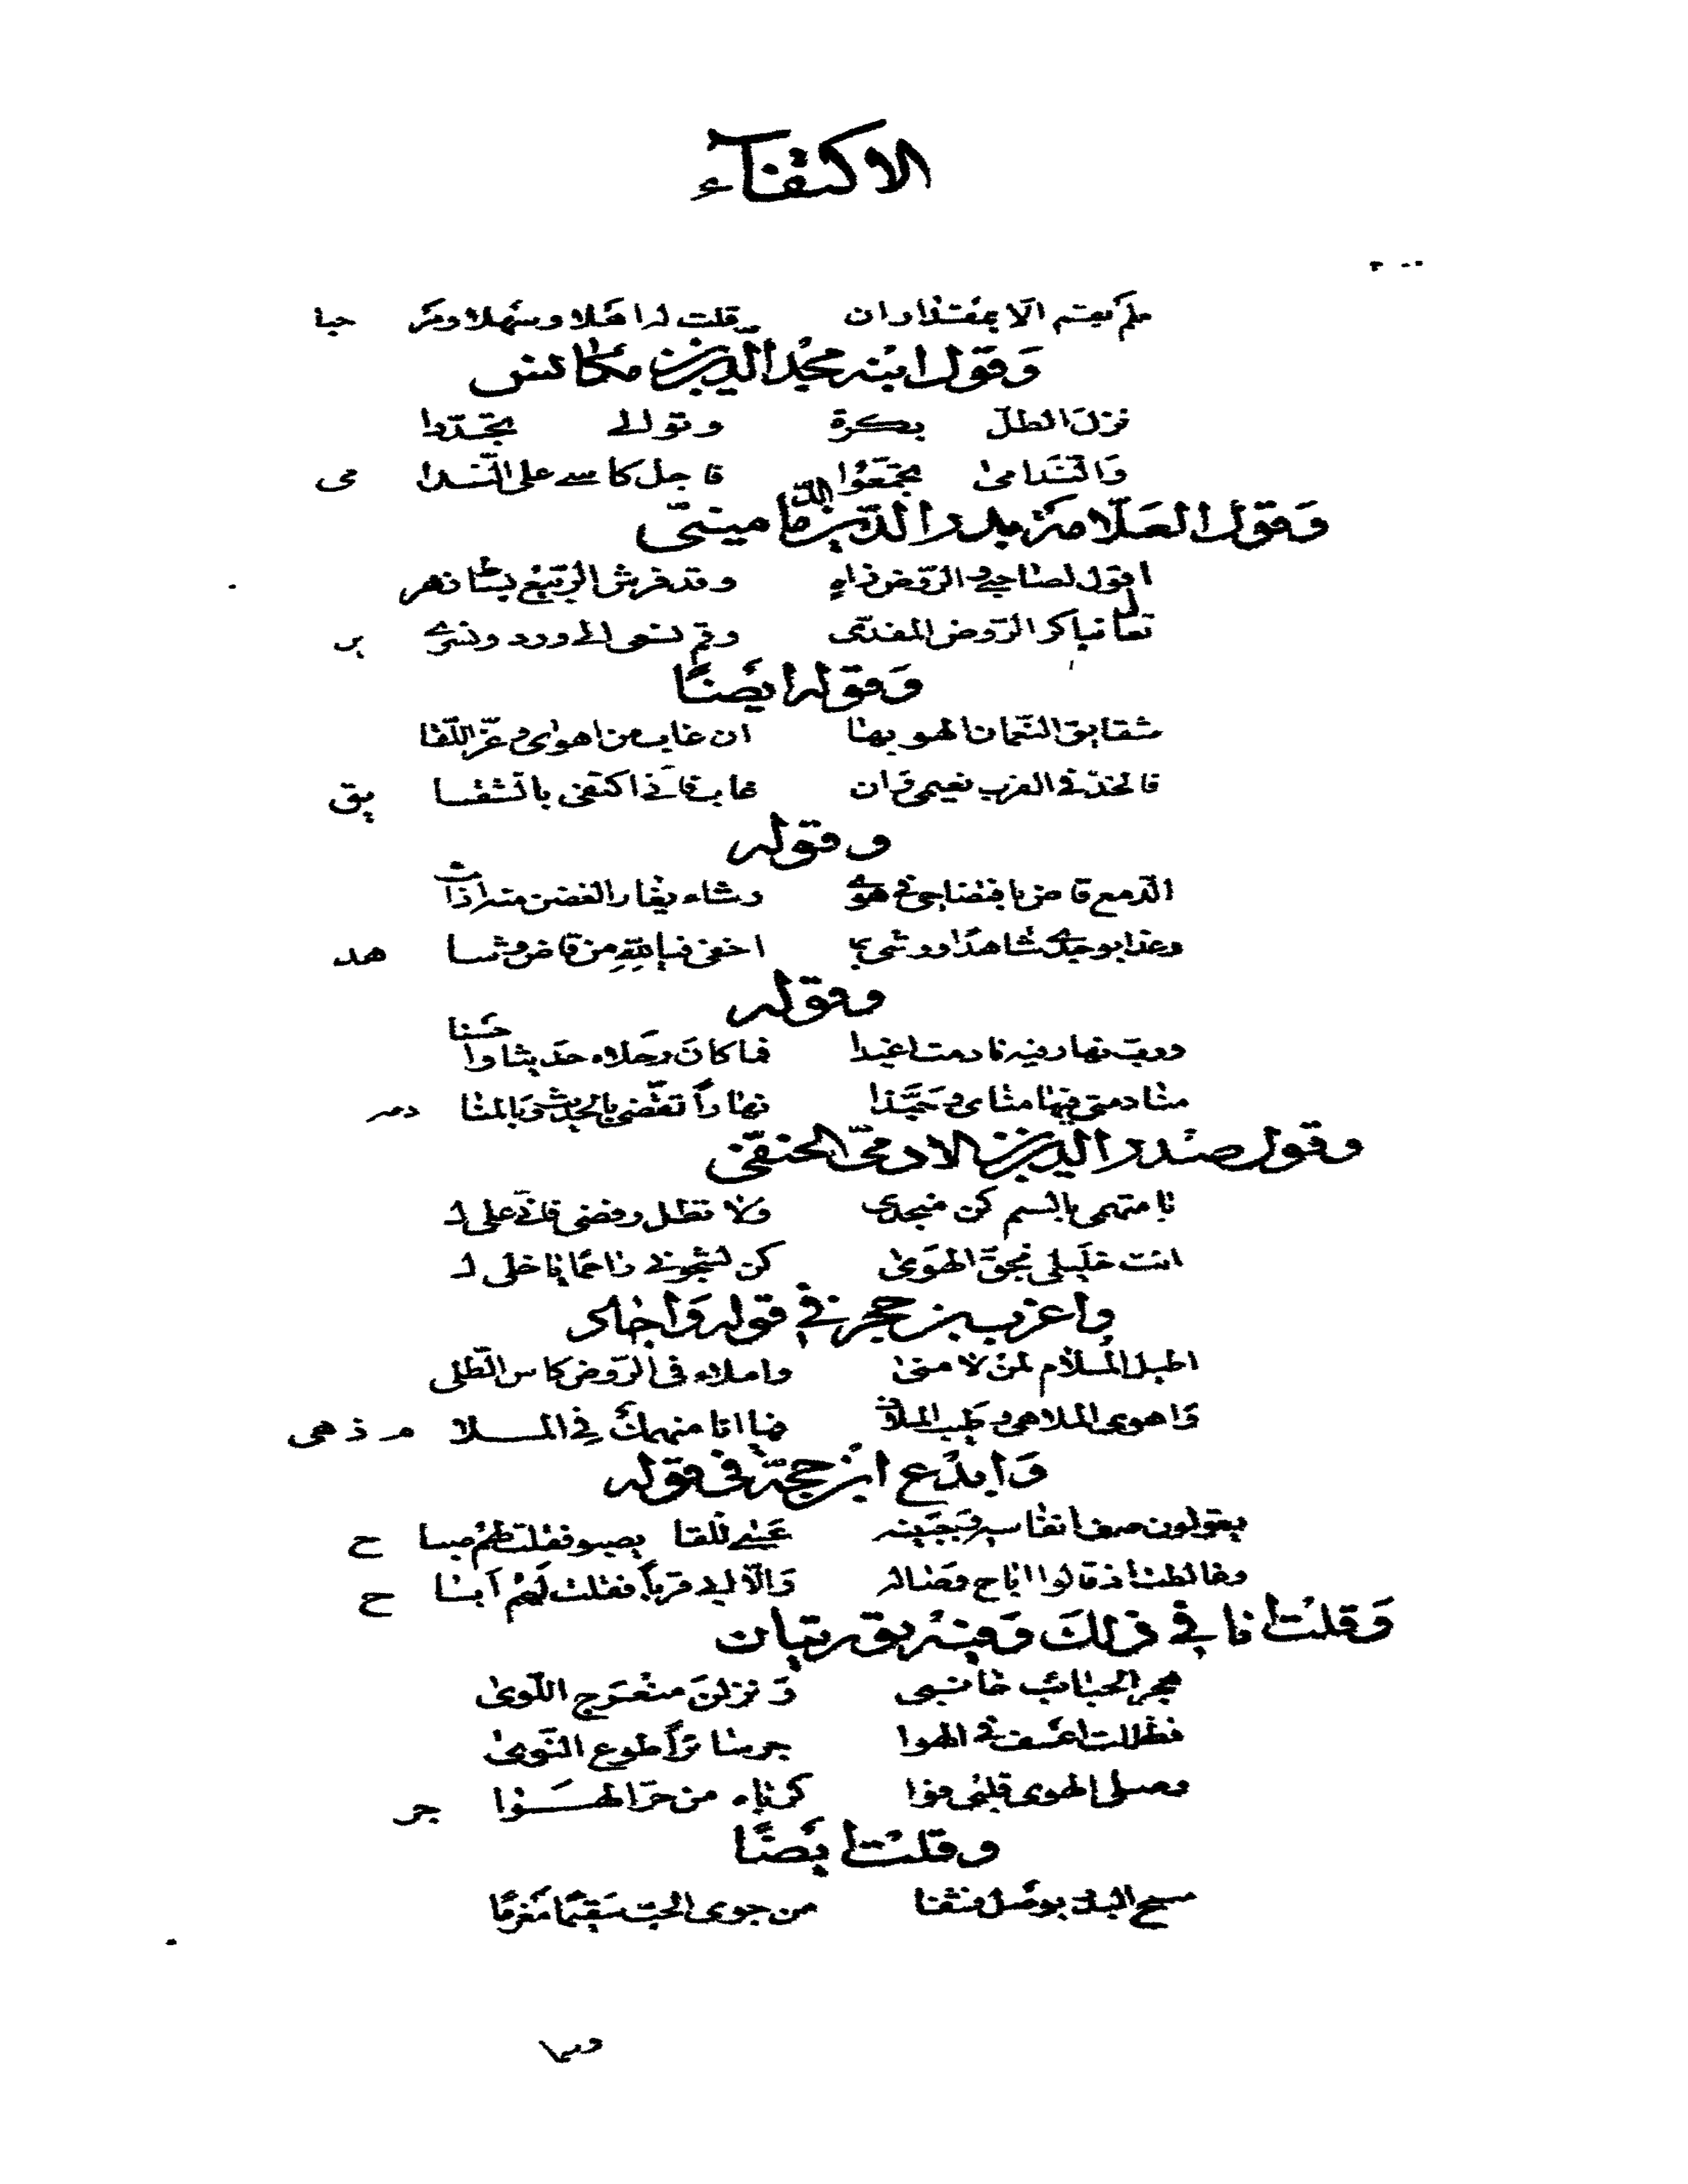 الاكتفاء
فلم يقم الا بمقدار ان قلت له اهلا وسهلا ومر حبا
وقول ابنه مجد الدين بن مكانس
نزل الطل بكرة وتوالى تجددا
والندامى تجمعوا فاجل كاسي على الندا مى
وقول العلامة بدر الدين الدمامينى
اقول لصاحبي والروض زاه وقد فرش الربيع بساط زهر
تعال نباكر الروض المفدى وقم نسعى الى ورد ونسري ن
وقوله ايضا
شقايق النعمان الهو بها ان غاب من اهوى وعز اللقا
فالخد في القرب نعيمى وان غاب فاني اكتفى بالشقا يق
وقوله
الدمع قاض بافتضاحى في هوى رشاء يغار الغصن منه اذا
وغدا بوجدي شاهدا ووشى بما اخفى فيا لله من قاض وشا هد
وقوله
ورب نهار فيه نادمت اغيدا فما كان احلاه حديثا واحسنا
منادمتى فيها مناى وحبذا نهارا تقضى بالحديث وبالمنا دمه
وقول صدر الدين بن الادمى الحنفى
يا متهمى بالسقم كن منجدى ولا تطل رفضى فاني على ل
انت خليلى فبحق الهوى كن لشجوني راحما يا خلى ل
واغرب بن حجر في قوله واجاد
اطيل الملام لمن لامنى واملاء فى الروض كاس الطلى
واهوى الملاهى وطيب الملاذ فها انا منهمك في الملا م ذ هى
وابدع ابن حجة فى قوله
يقولون صف انفاسه وجبينه عسي للقا يصبو فقلت لهم صبا ح
وغالطت اذ قالوا اباح وصاله والا ابى قربا فقلت لهم ابا ح
وقلت انا في ذلك وفيه توريتان
هجر الحبائب خانبى ونزلن منعرج اللوى
فظللت اعسف في الهوا جر سنا تراطوع النوى
وصلى الهوى قلبى فوا كرباه من حر الهوا جر
وقلت ايضا
سمح البدر بوصل فشفا من جوى الحب سقيما مغرما